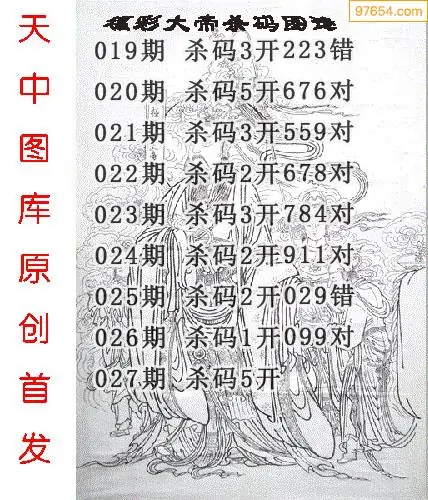 97654.com
福彩大帝杀码图谜
019期 杀码3开223错
020期 杀码5开676对
021期 杀码3开559对
022期 杀码2开678对
023期 杀码3开784对
024期 杀码2开911对
025期 杀码2开029错
026期 杀码1开099对
027期 杀码5开
天中图库原创首发